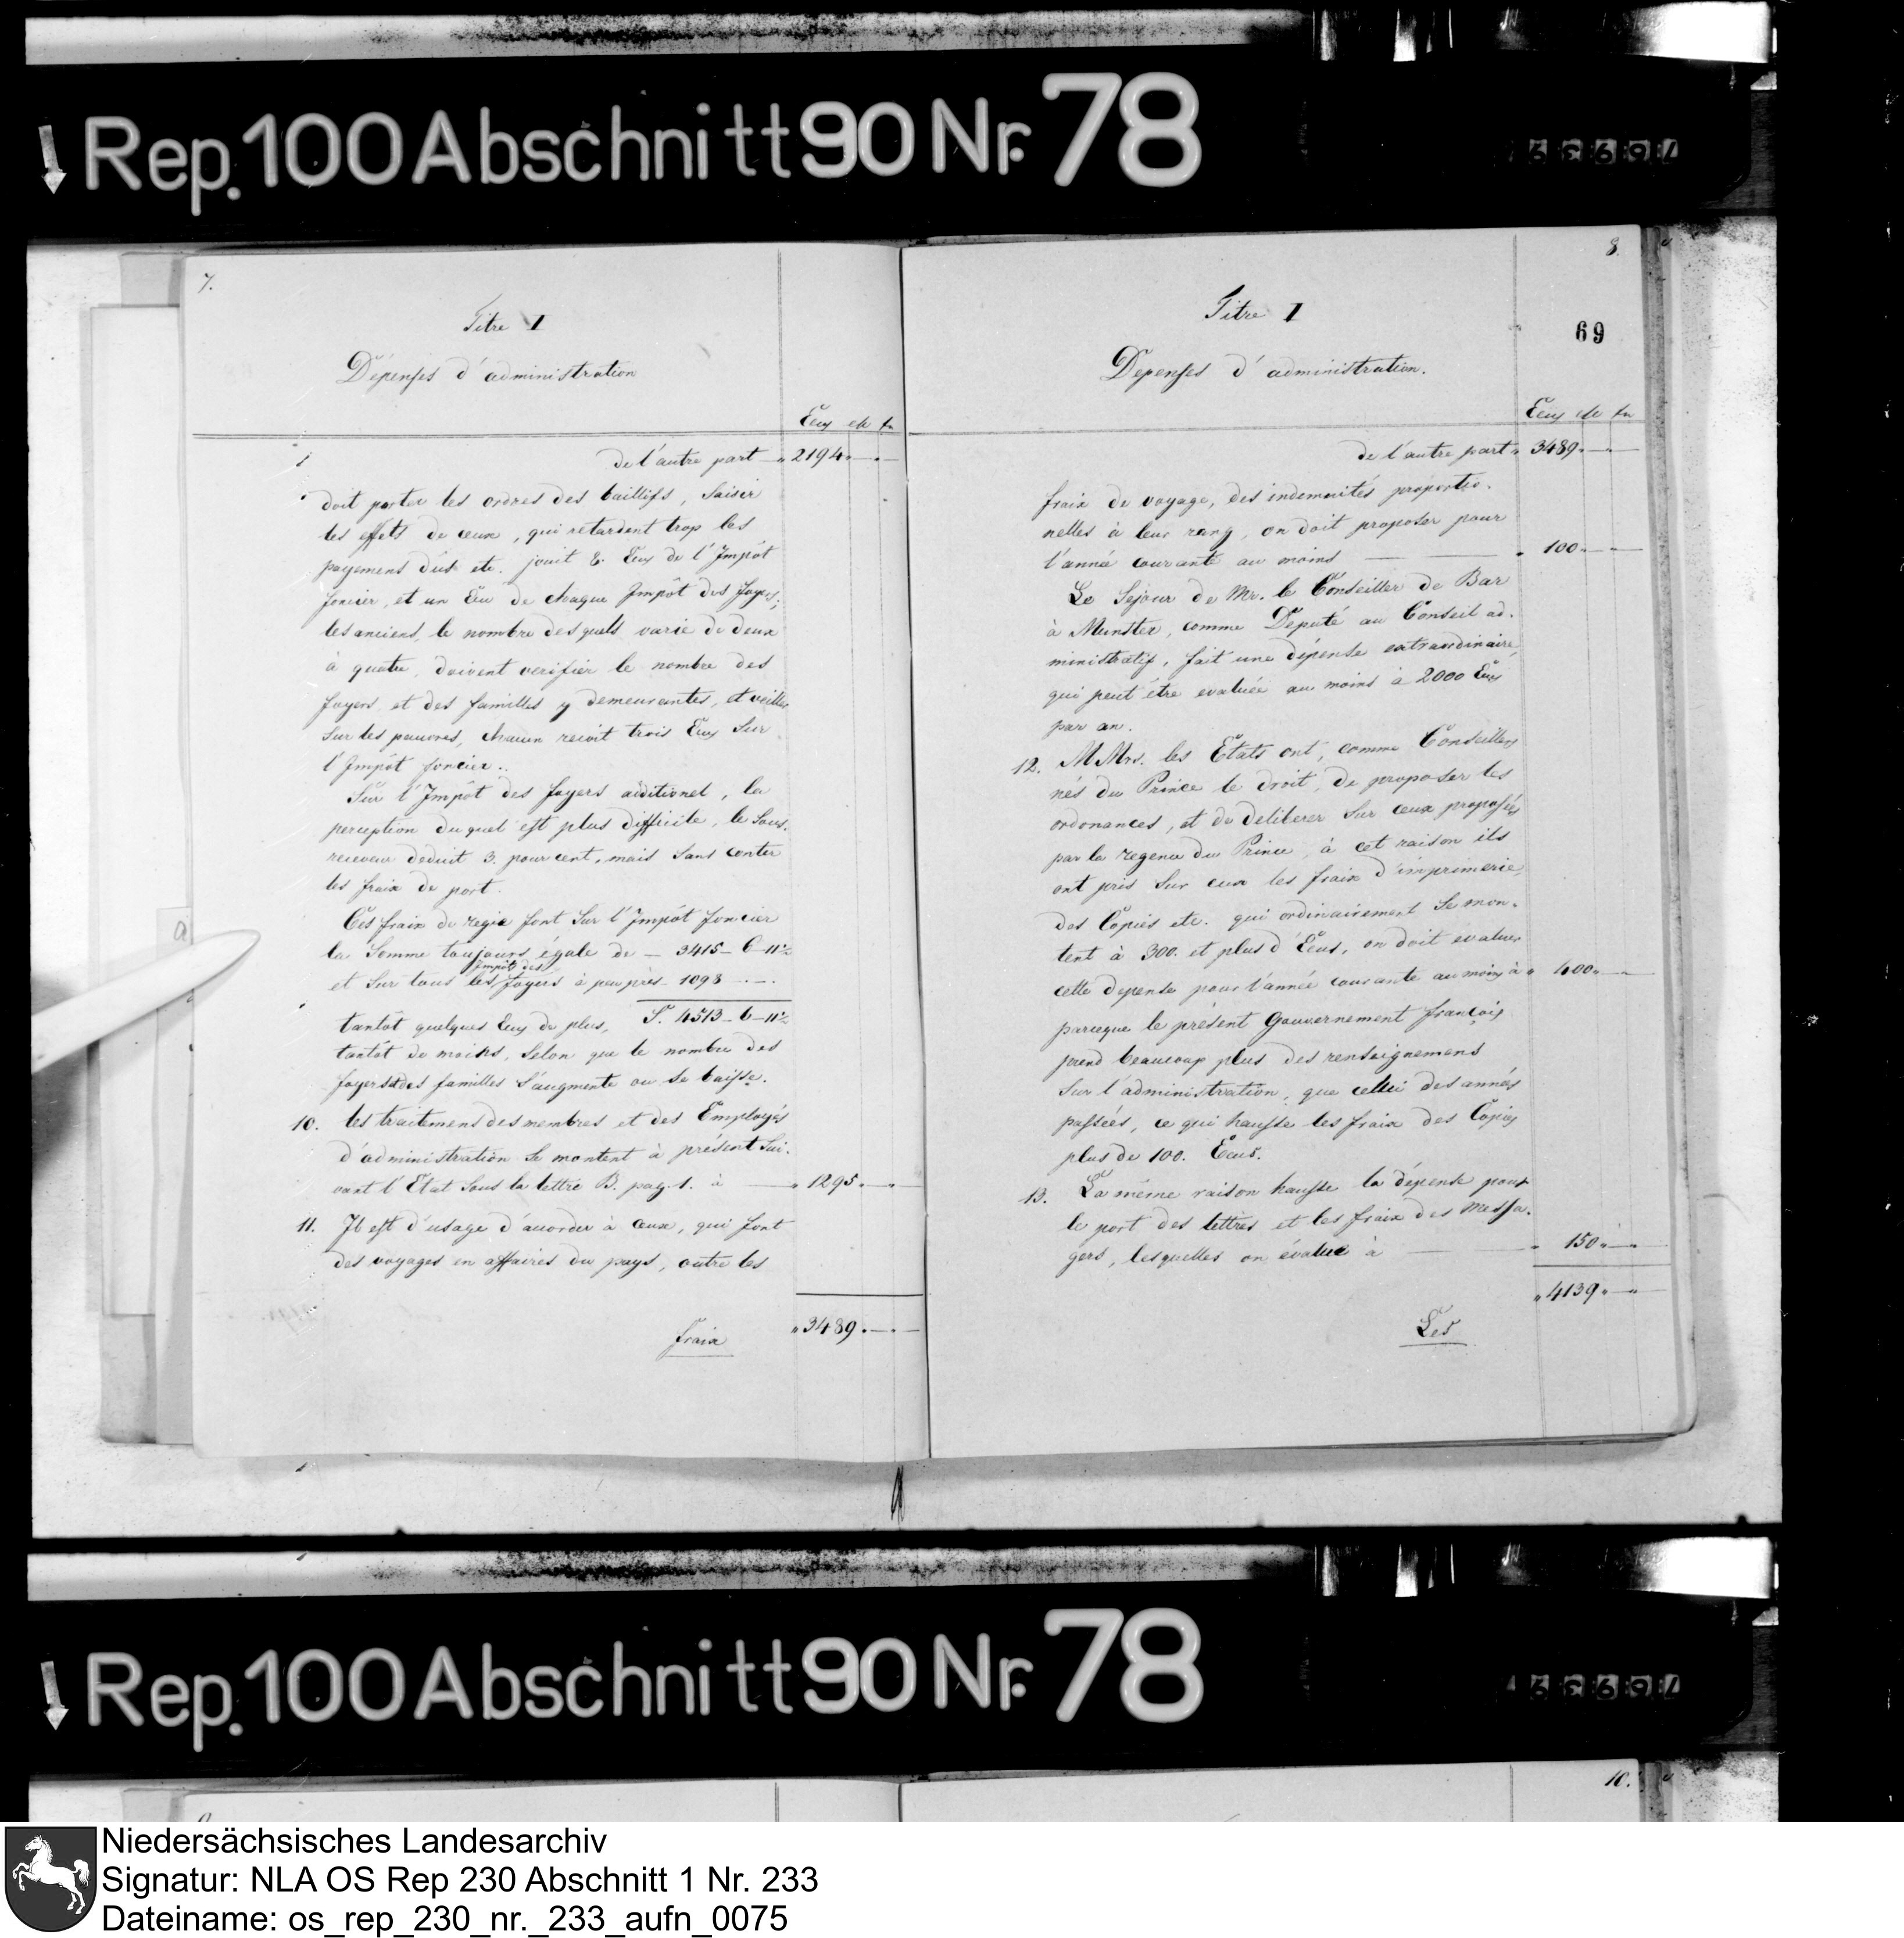 Rep. 100 Abschnitt 90 Nr. 78
7.
Titre I
Dépenses d'administration
Ecus
de l'autre part 2194
doit porter les ordres des baillifs, saisir
les effets de ceux, qui retardent trop les
payemens dus etc. jouit 8. Ecus de l'Impôt
foncier, et un Ecu de chaque Impôt des foyers;
les anciens, le nombre desquels varie de deux
à quatre, doivent verifier le nombre des
foyers et des familles y demeurantes, et veiller
sur les pauvres, chacun reçoit trois Ecus sur
l'Impôt foncier.
Sur l'Impôt des foyers additionel, la
perception duquel est plus difficile, le sous-
receveur deduit 3. pour cent, mais sans conter
les fraix de port.
Ces fraix de regie font sur l'Impôt foncier
la somme toujours égale de — 3415 — 6 — 11½
et sur tous les impôts des foyers à peu près — 1098
S. 4513 — 6 — 11½
tantôt quelques Ecus de plus,
tantôt de moins, selon que le nombre des
foyers et des familles s'augmente ou se baisse.
10. les traitemens des membres et des Employés
d'administration se montent à présent sui-
vant l'Etat sous la lettre B. pag. 1. à 1295
11. Il est d'usage d'accorder à ceux, qui font
des voyages en affaires du pays, outre les
3489
fraix
8
69
Titre I
Depenses d'administration.
Ecus
de l'autre part 3489
fraix de voyage, des indemnités proportio-
nelles à leur rang, on doit proposer pour
l'année courante au moins 100
Le Sejour de Mr. le Conseiller de Bar
à Munster, comme Deputé au Conseil ad-
ministratif, fait une dépense extraordinaire,
qui peut être evaluée au moins à 2000 Ecus
par an.
12. MMrs. les Etats ont, comme Conseillers
nés du Prince le droit, de proposer les
ordonances, et de deliberer sur ceux proposées
par la regence du Prince, à cet raison ils
ont pris sur eux les fraix d'imprimerie,
des Copies etc. qui ordinairement se mon-
tent à 300. et plus d'Ecus, on doit evaluer
cette depense pour l'année courante au moins à 400
parceque le présent Gouvernement françois
prend beaucoup plus des renseignemens
sur l'administration, que cellui des années
passées, ce qui hausse les fraix des Copies
plus de 100. Ecus.
13. La même raison hausse la dépense pour
le port des lettres et les fraix des messa-
gers, lesquelles on évalue à 150
4139
Les
Rep. 100 Abschnitt 90 Nr. 78
10.
Niedersächsisches Landesarchiv
Signatur: NLA OS Rep 230 Abschnitt 1 Nr. 233
Dateiname: os_rep_230_nr._233_aufn_0075